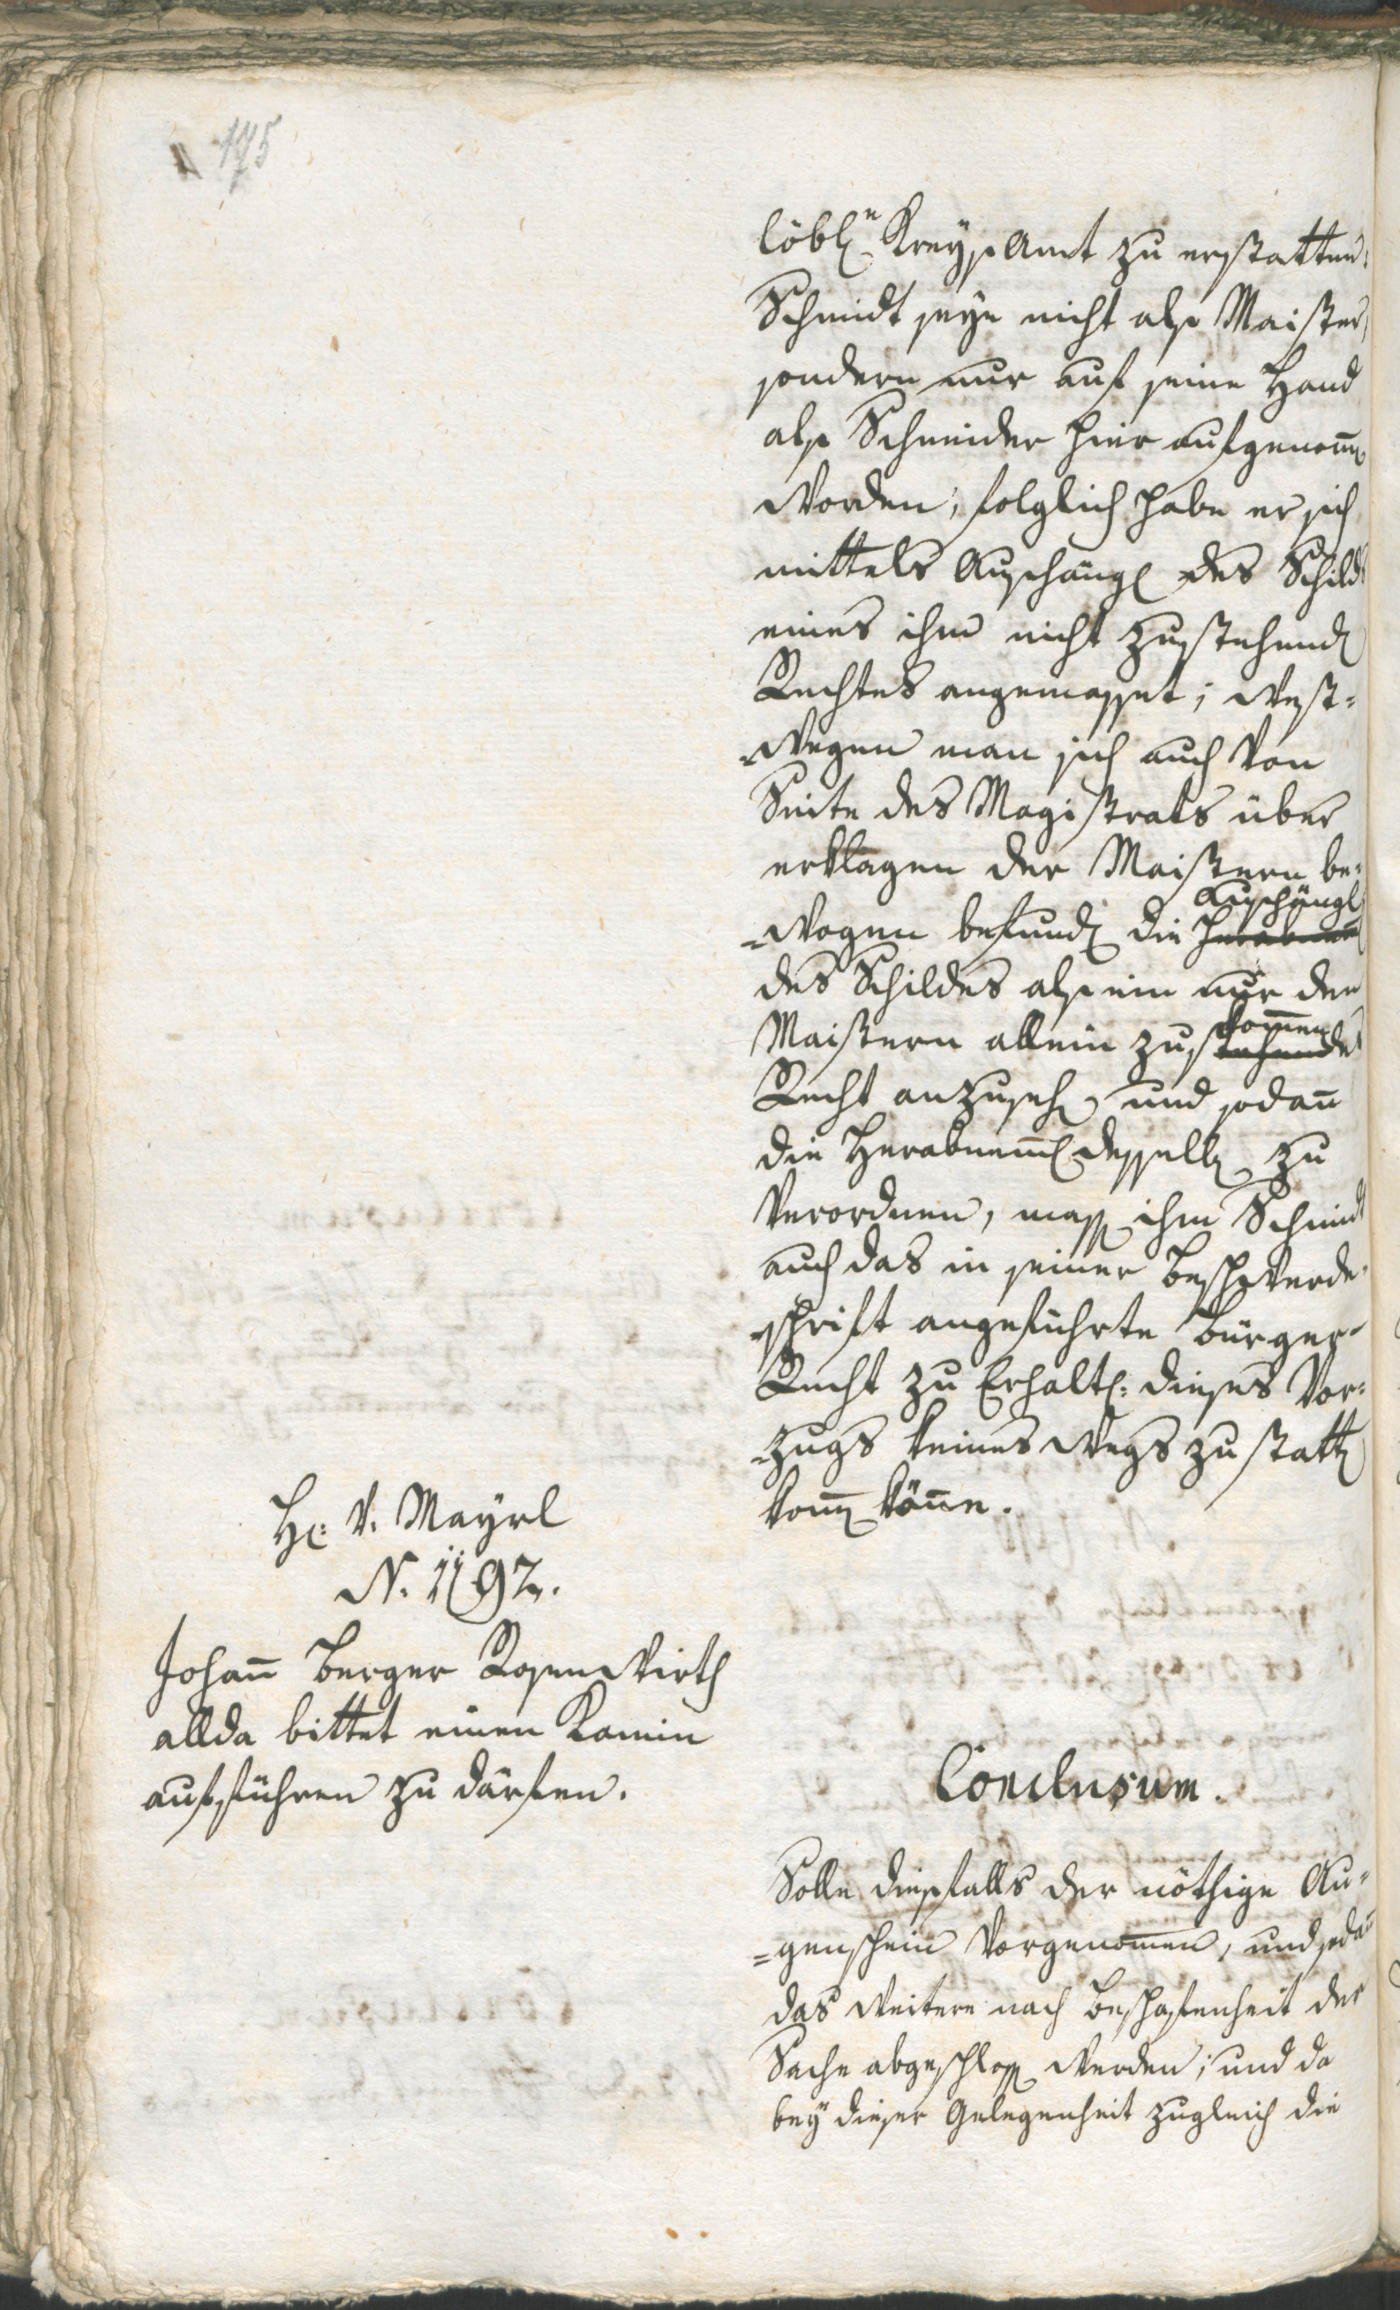 175
löbl:n Kreÿs Amt zu erstatten:
Schmidt seÿe nicht als Maister,
sondern nur auf seine Hand
als Schneider hier aufgenom̄en
worden; folglich habe er sich
mittels Aushäng des Schilds
eines ihm nicht zustehend
Rechtes angemasset; west=
=wegen man sich auch von
Seite des Magistrats über
erklagen der Maistern be=
Aushängl
=wogen befund die Herabnem̄
des Schildes als ein nur den
kom̄en
Maistern allein zustehendes
Recht anzuseh und sodan̄
die Herabnem̄ desselb zu
verordnen, mass ihm Schmidt
auch das in seiner beschwerde=
=schrift angeführte bürger=
Recht zu Erhalt: dieses Vor=
=zugs keines wegs zu statt
kom̄ kön̄e.
H: v. Maÿrl
N. 1192.
Johan̄ berger Rosenwirth
allda bittet einen Kamin
aufführen zu därfen.
Conclusum.
Solle diesfalls der nöthige Au=
=genschein vorgenom̄en, und sodan̄
das weitere nach beschaffenheit der
Sache abgeschloss werden; und da
beÿ dieser Gelegenheit zugleich die